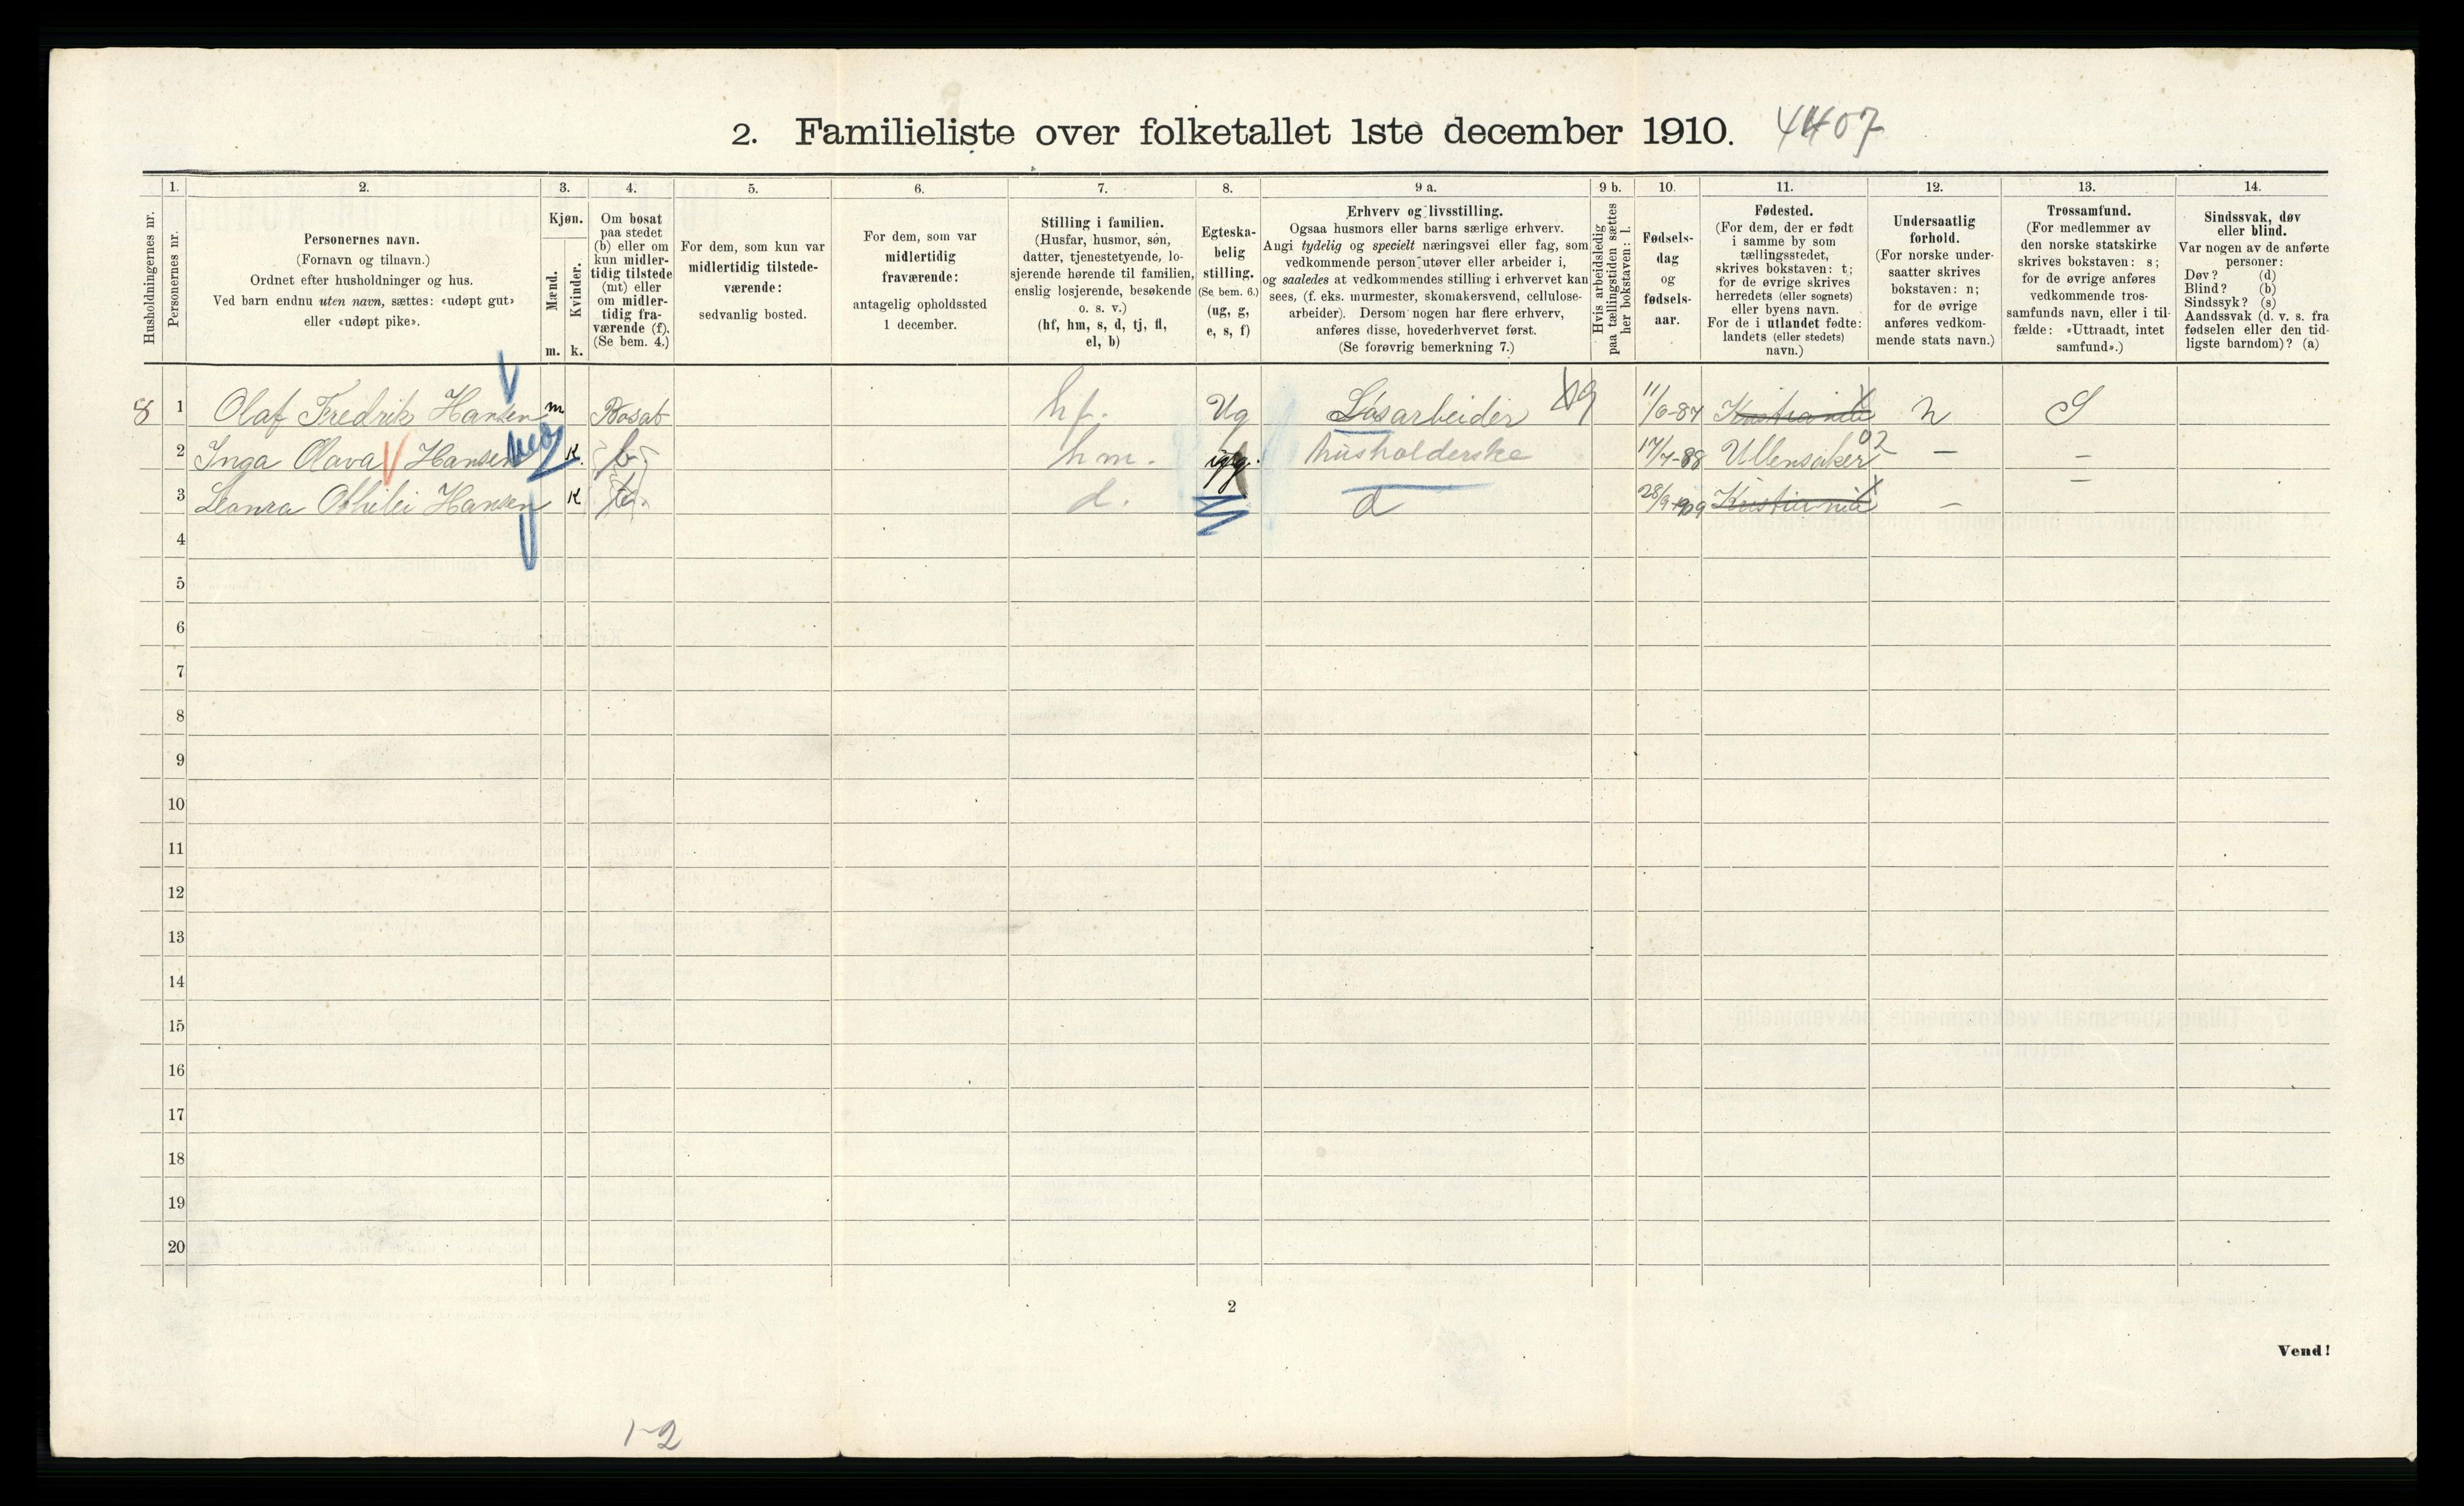 2. Familieliste over folketallet 1ste december 1910. 4407
1. 2. 3. 4. 5. 6. 7. 8. 9 a. 9 b. 10. 11. 12. 13. 14.
Husholdningernes nr.
Personernes nr.
Personernes navn.
(Fornavn og tilnavn.)
Ordnet efter husholdninger og hus.
Ved barn endnu uten navn, sættes: «udøpt gut»
eller «udøpt pike».
Kjøn.
Mænd.
Kvinder.
m. k.
Om bosat
paa stedet
(b) eller om
kun midler-
tidig tilstede
(mt) eller
om midler-
tidig fra-
værende (f).
(Se bem. 4.)
For dem, som kun var
midlertidig tilstede-
værende:
sedvanlig bosted.
For dem, som var
midlertidig
fraværende:
antagelig opholdssted
1 december.
Stilling i familien.
(Husfar, husmor, søn,
datter, tjenestetyende, lo-
sjerende hørende til familien,
enslig losjerende, besøkende
o. s. v.)
(hf, hm, s, d, tj, fl,
el, b)
Egteska-
belig
stilling.
(Se bem. 6.)
(ug, g,
e, s, f)
Erhverv og livsstilling.
Ogsaa husmors eller barns særlige erhverv.
Angi tydelig og specielt næringsvei eller fag, som
vedkommende person utøver eller arbeider i,
og saaledes at vedkommendes stilling i erhvervet kan
sees, (f. eks. murmester, skomakersvend, cellulose-
arbeider). Dersom nogen har flere erhverv,
anføres disse, hovederhvervet først.
(Se forøvrig bemerkning 7.)
Hvis arbeidsledig
paa tællingstiden sættes
her bokstaven: l.
Fødsels-
dag
og
fødsels-
aar.
Fødested.
(For dem, der er født
i samme by som
tællingsstedet,
skrives bokstaven: t;
for de øvrige skrives
herredets (eller sognets)
eller byens navn.
For de i utlandet fødte:
landets (eller stedets)
navn.)
Undersaatlig
forhold.
(For norske under-
saatter skrives
bokstaven: n;
for de øvrige
anføres vedkom-
mende stats navn.)
Trossamfund.
(For medlemmer av
den norske statskirke
skrives bokstaven: s;
for de øvrige anføres
vedkommende tros-
samfunds navn, eller i til-
fælde: «Uttraadt, intet
samfund».)
Sindssvak, døv
eller blind.
Var nogen av de anførte
personer:
Døv? (d)
Blind? (b)
Sindssyk? (s)
Aandssvak (d. v. s. fra
fødselen eller den tid-
ligste barndom)? (a)
8 1 Olaf Fredrik Hansen m Bosat hf. Ug Løsarbeider 11/6-87 Kristiania n S
2 Inga Olava Hansen K. b hm. husholderske 17/7-88 Ullensaker 02 — —
3 Othilei Hansen K d. d 28/9-1909 Kristiania — —
4
5
6
7
8
9
10
11
12
13
14
15
16
17
18
19
20
2
Vend!
1-2